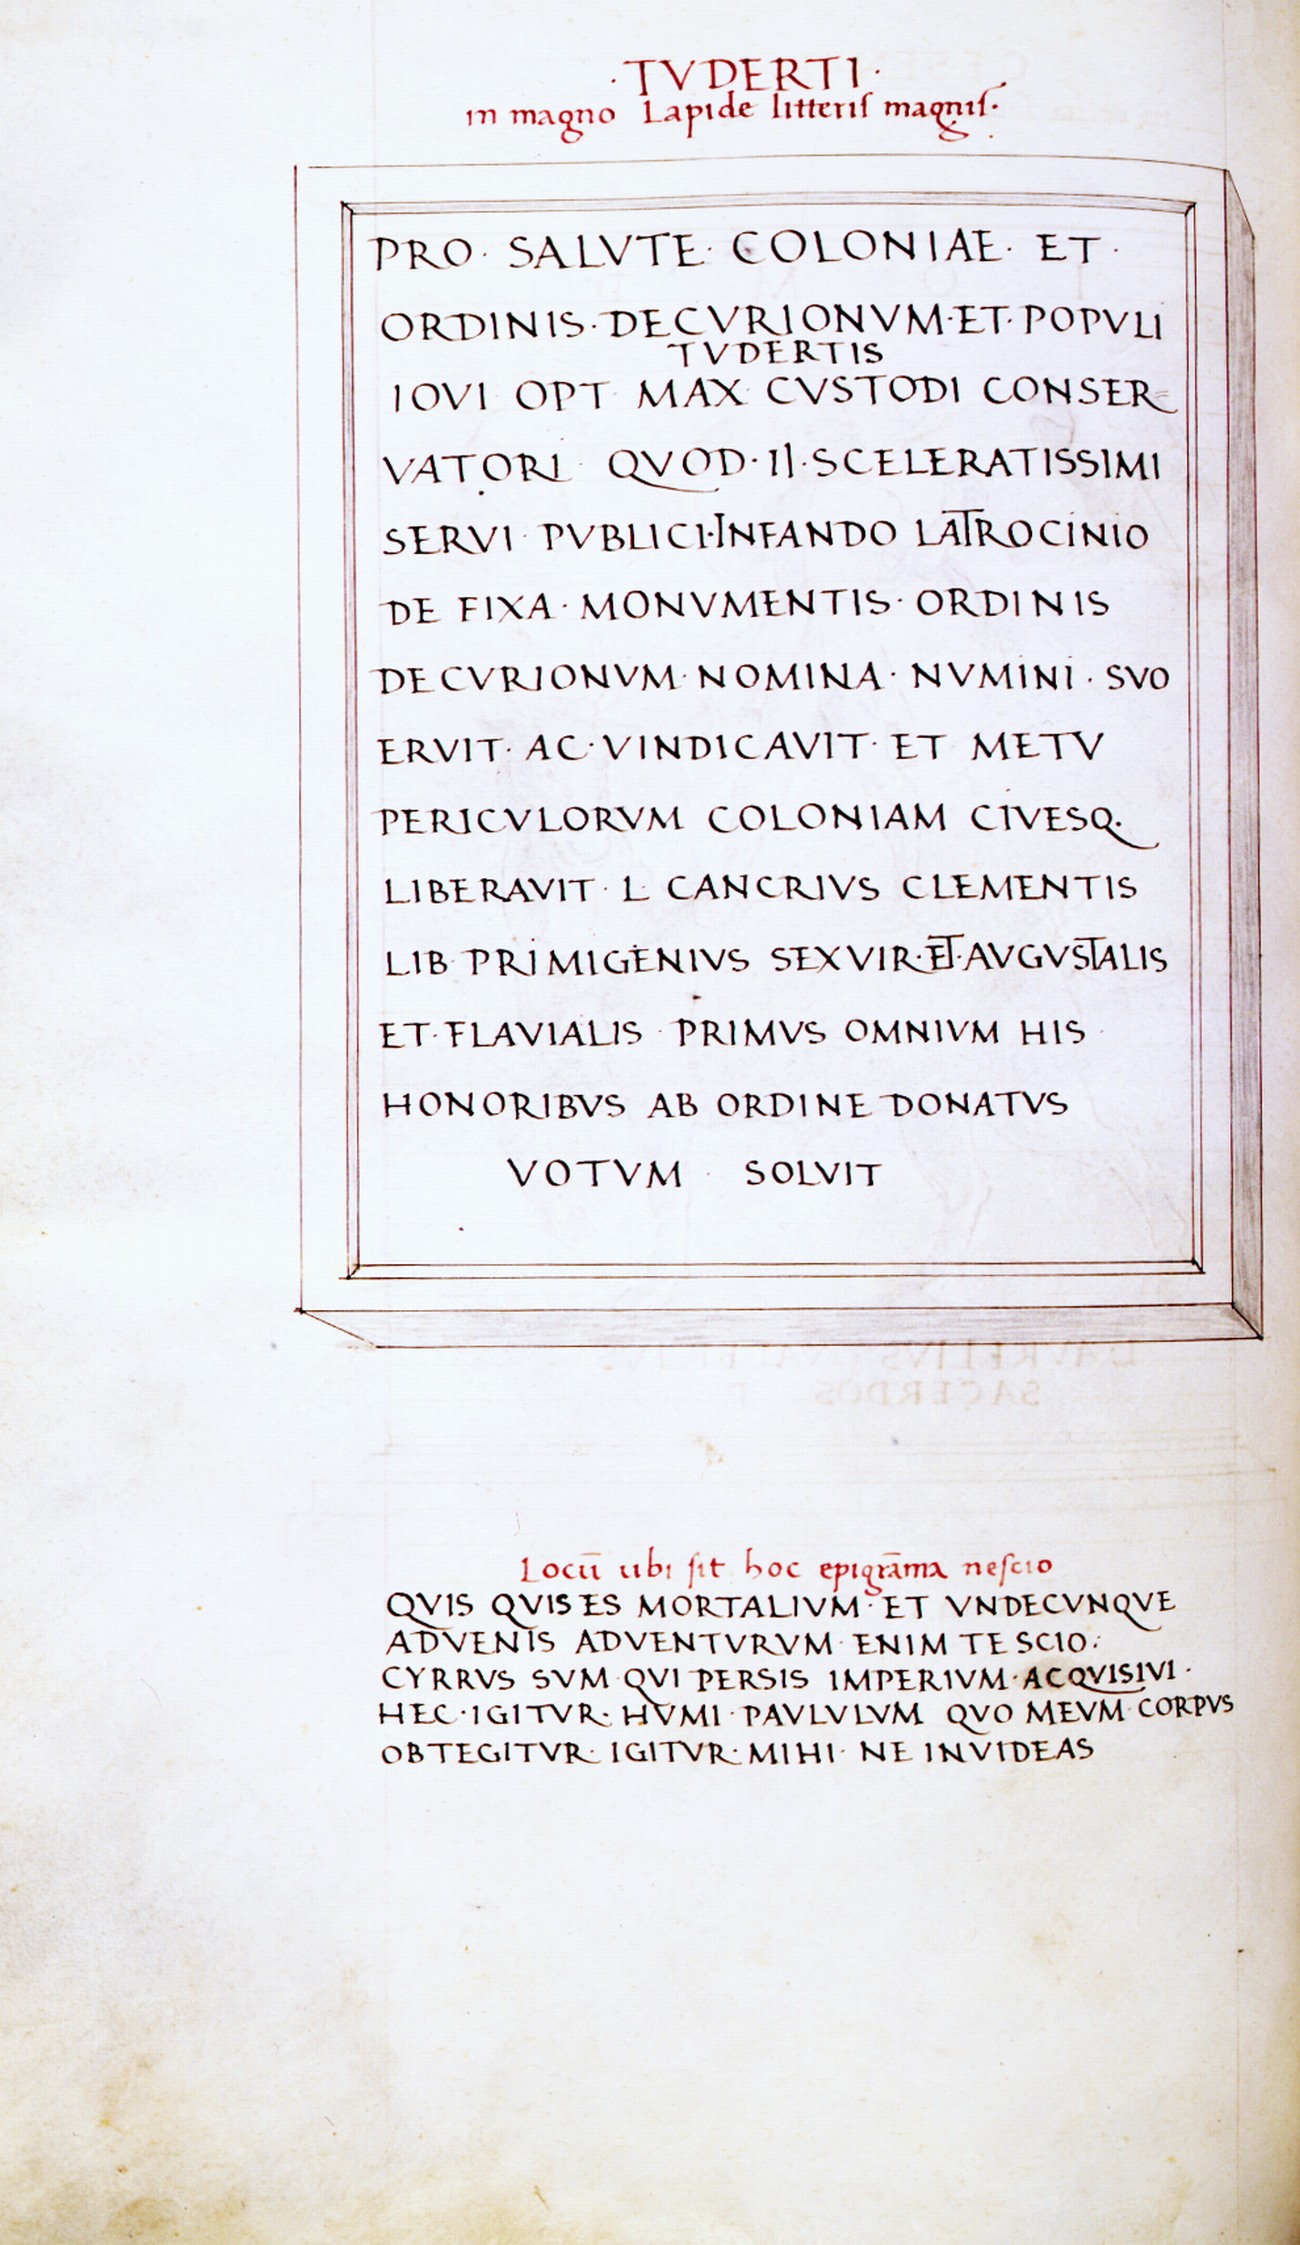 ·TVDERTI·
in magno Lapide litteriſ magniſ·
PRO· SALVTE· COLONIAE· ET·
ORDINIS·DECVRIONVM·ET·POPVLI
TVDERTIS
IOVI OPT MAX CVSTODI CONSER-
VATORI QVOD·II·SCELERATISSIMI
SERVI PVBLICI·INFANDO LATROCINIO
DE FIXA· MONVMENTIS· ORDINIS
DECVRIONVM·NOMINA· NVMINI· SVO
ERVIT· AC·VINDICAVIT· ET METV
PERICVLORVM COLONIAM CIVESQ·
LIBERAVIT· L CANCRIVS CLEMENTIS
LIB PRIMIGENIVS SEXVIR·ET·AVGVSTALIS
ET·FLAVIALIS PRIMVS OMNIVM HIS
HONORIBVS AB ORDINE DONATVS
VOTVM · SOLVIT
Locū ubi ſit hoc epigrāma neſcio
QVIS QVIS ES MORTALIVM· ET VNDECVNQVE
ADVENIS ADVENTVRVM ENIM TE SCIO:
CYRRVS SVM QVI PERSIS IMPERIVM·ACQVISIVI·
HEC·IGITVR· HVMI·PAVLVLVM QVO MEVM CORPVS
OBTEGITVR· IGITVR·MIHI· NE INVIDEAS